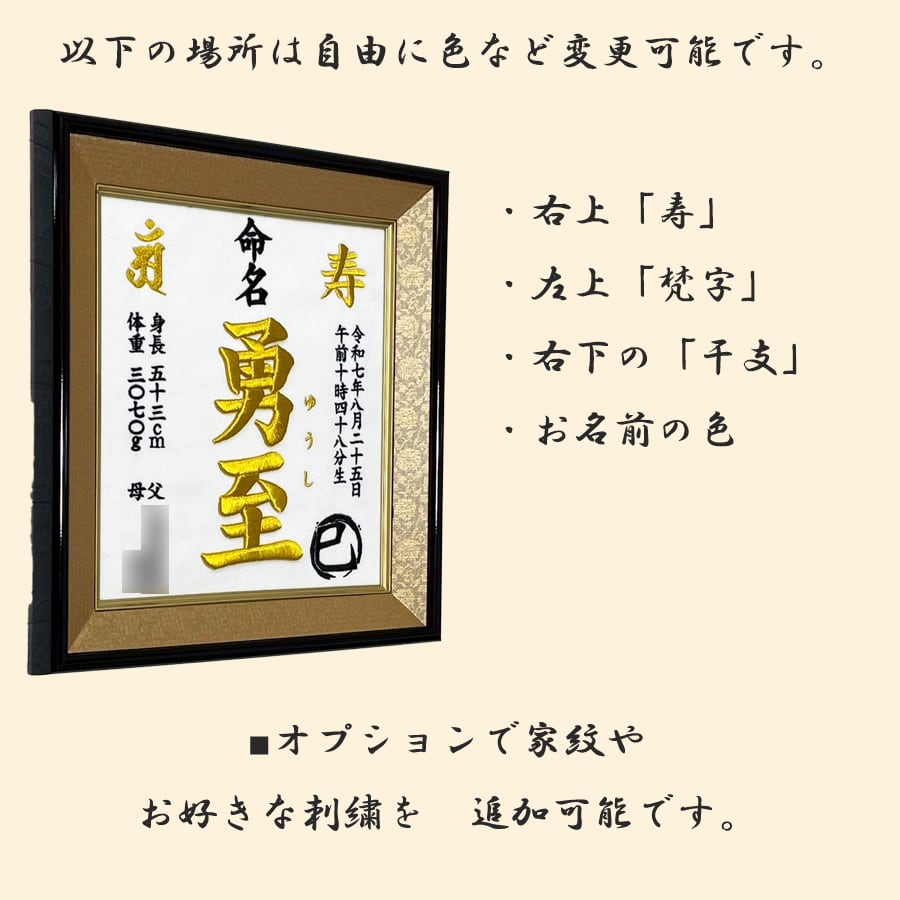 以下の場所は自由に色など変更可能です。
・右上「寿」
・左上「梵字」
・右下の「干支」
・お名前の色
寿
令和七年八月二十五日
午前十時四十八分生
巳
命名
勇至
ゆうし
身長 五十三cm 父
体重 三〇七〇g 母
■オプションで家紋や
お好きな刺繍を 追加可能です。